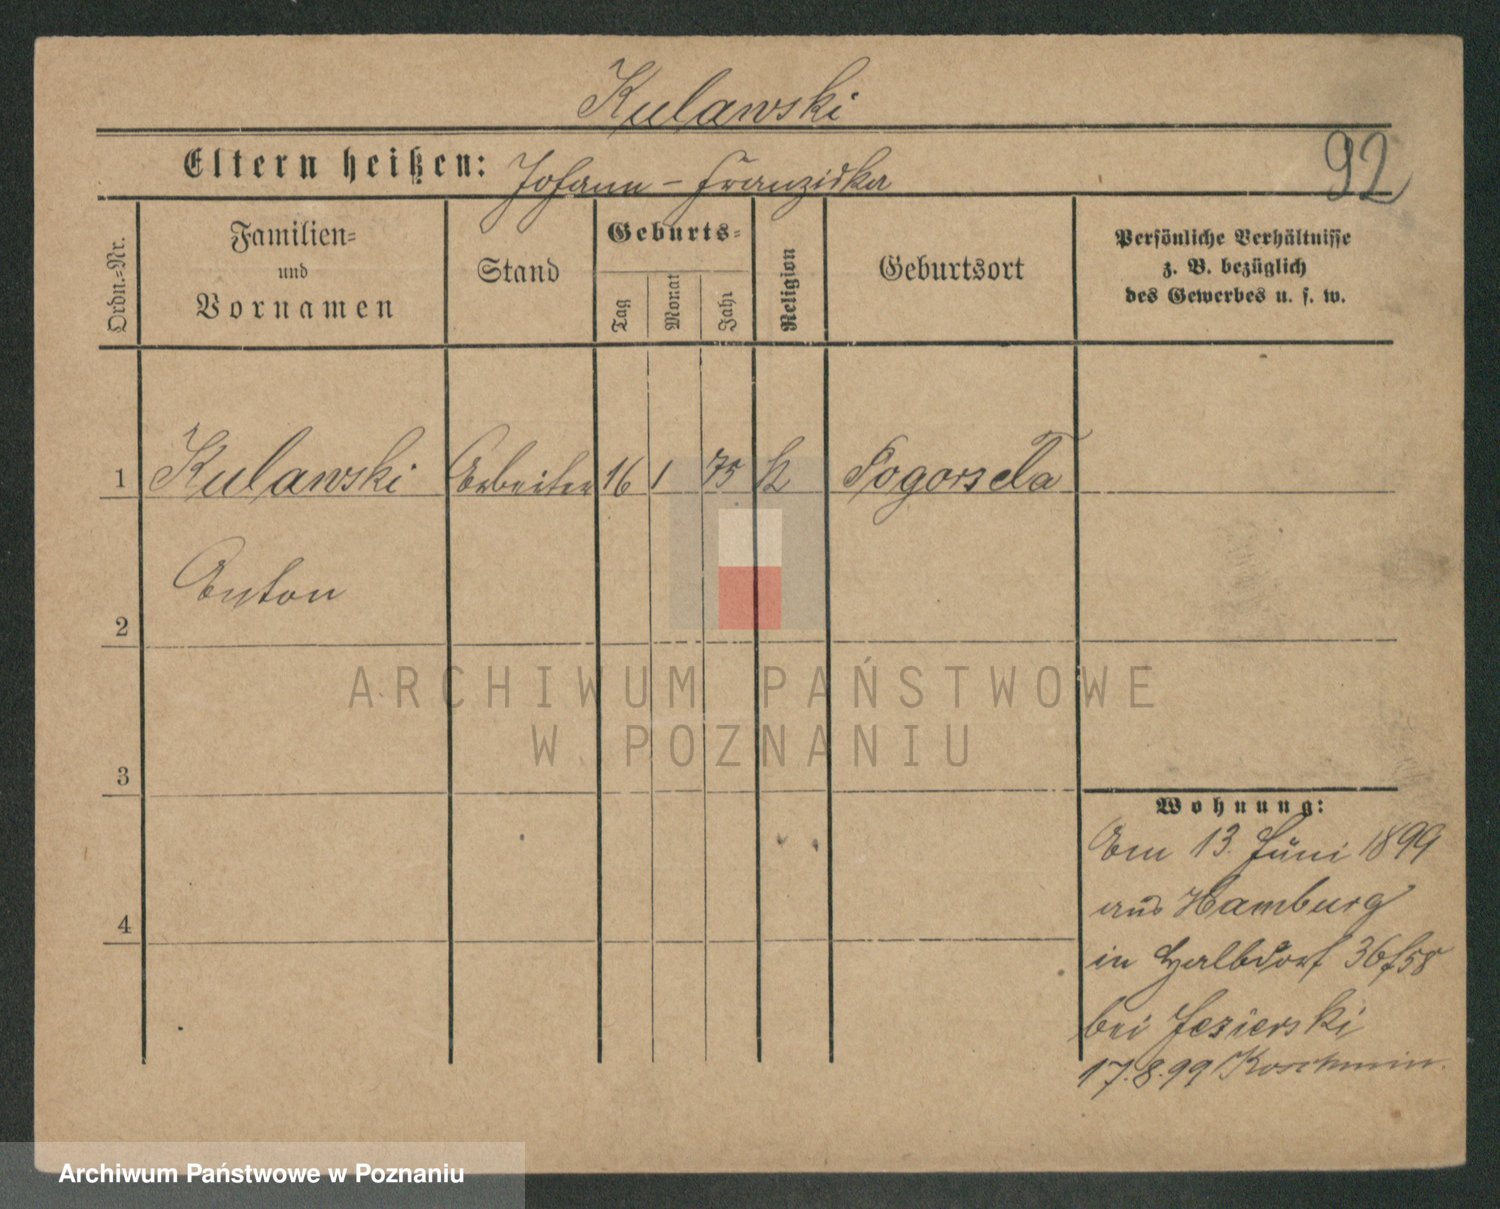 Kulawski
92
Eltern heißen: Johann – Franziska
Ordn.-Nr.
Familien-
und
Vornamen
Stand
Geburts-
Tag
Monat
Jahr
Religion
Geburtsort
Persönliche Verhältnisse
z. B. bezüglich
des Gewerbes u. s. w.
1 Kulawski Arbeiter 16 1 75 k Pogorsela
Anton
2
ARCHIWUM PAŃSTWOWE
W POZNANIU
3
Wohnung:
Am 13. Juni 1899
aus Hamburg
4
in Halbdorf 36/58
bei Jezierski
17.8.99 Koschmin
Archiwum Państwowe w Poznaniu